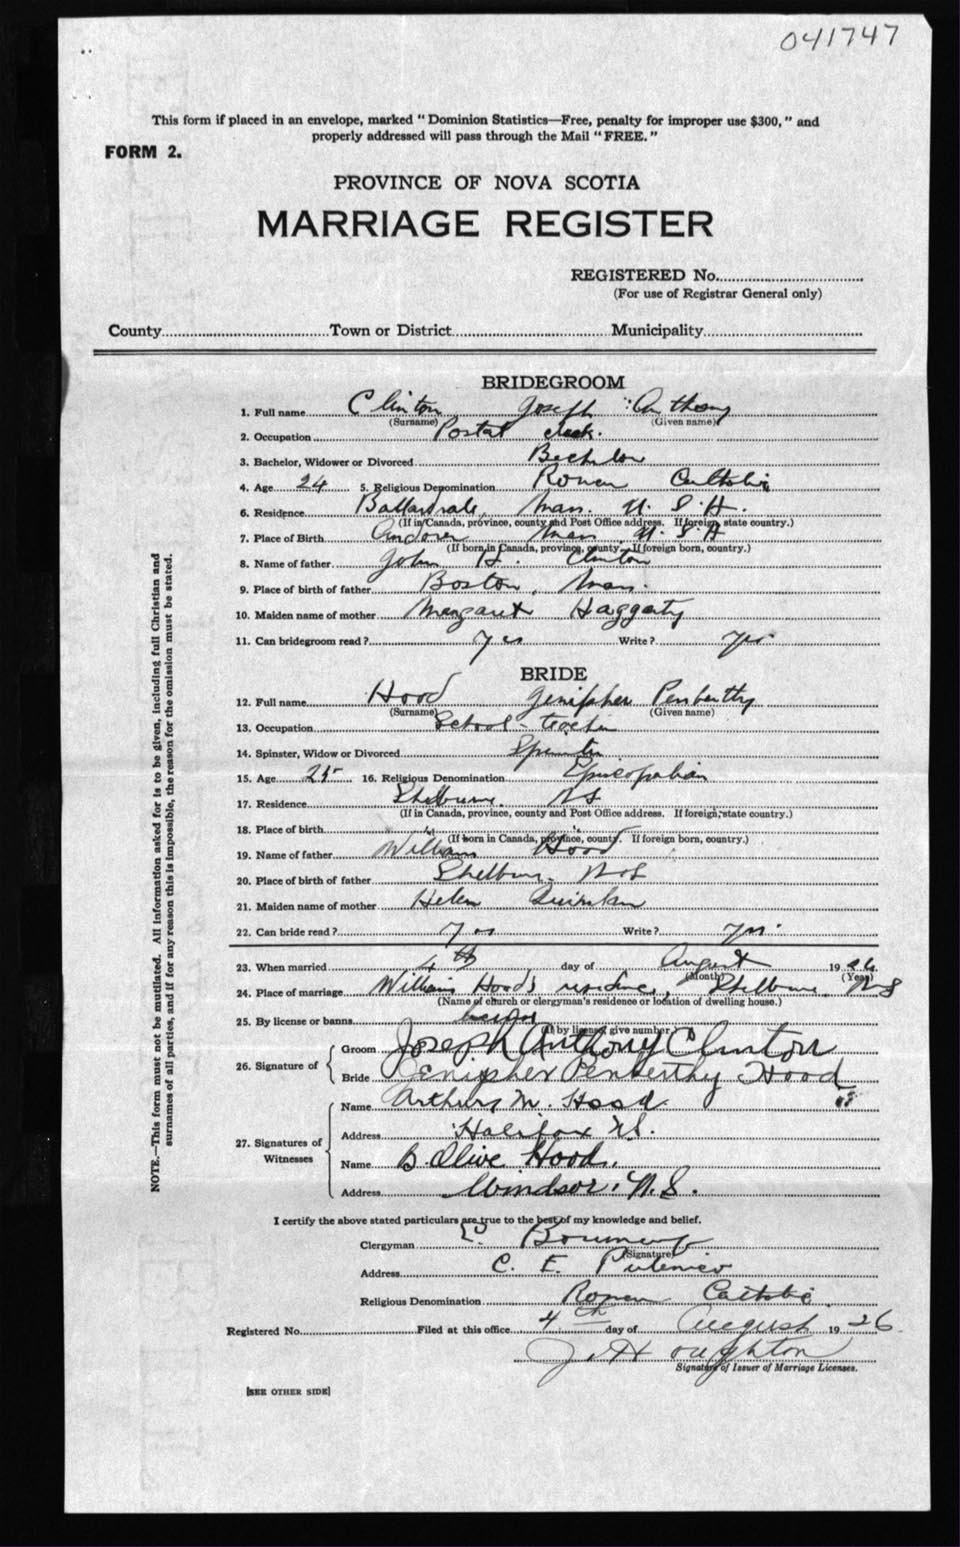 041747
This form if placed in an envelope, marked "Dominion Statistics—Free, penalty for improper use $300," and
properly addressed will pass through the Mail "FREE."
FORM 2.
PROVINCE OF NOVA SCOTIA
MARRIAGE REGISTER
REGISTERED No.
(For use of Registrar General only)
County Town or District Municipality
BRIDEGROOM
1. Full name Clinton Joseph Anthony
(Surname) (Given name)
2. Occupation Postal clerk.
3. Bachelor, Widower or Divorced Bachelor
4. Age 24 5. Religious Denomination Roman Catholic
6. Residence Ballardvale, Mass. U. S. A.
(If in Canada, province, county and Post Office address. If foreign, state country.)
7. Place of Birth Andover Mass U. S. A
(If born in Canada, province, county. If foreign born, country.)
8. Name of father John H. Clinton
9. Place of birth of father Boston, Mass.
10. Maiden name of mother Margaret Haggarty
11. Can bridegroom read? Yes Write? Yes
BRIDE
12. Full name Hood Jenipher Penberthy
(Surname) (Given name)
13. Occupation School-teacher
14. Spinster, Widow or Divorced Spinster
15. Age 25 16. Religious Denomination Episcopalian
17. Residence Shelburne. NS
(If in Canada, province, county and Post Office address. If foreign, state country.)
18. Place of birth " "
(If born in Canada, province, county. If foreign born, country.)
19. Name of father William Hood
20. Place of birth of father Shelburne N S
21. Maiden name of mother Helen
22. Can bride read? Yes Write? Yes.
23. When married 4th day of August 1926
(Month) (Year)
24. Place of marriage William Hood's residence, Shelburne, N S
(Name of church or clergyman's residence or location of dwelling house.)
25. By license or banns license
(If by license give number)
26. Signature of Groom Joseph Anthony Clinton
Bride Jenipher Penberthy Hood
27. Signatures of Witnesses
Name Arthur M. Hood
Address Halifax N.S.
Name B. Olive Hood.
Address Windsor, N.S.
I certify the above stated particulars are true to the best of my knowledge and belief.
Clergyman
(Signature)
Address C. E. Pubnico
Religious Denomination Roman Catholic
Registered No. Filed at this office 4th day of August 1926
J. H. Oughton
Signature of Issuer of Marriage Licenses.
[SEE OTHER SIDE]
NOTE.—This form must not be mutilated. All information asked for is to be given, including full Christian and
surnames of all parties, and if for any reason this is impossible, the reason for the omission must be stated.